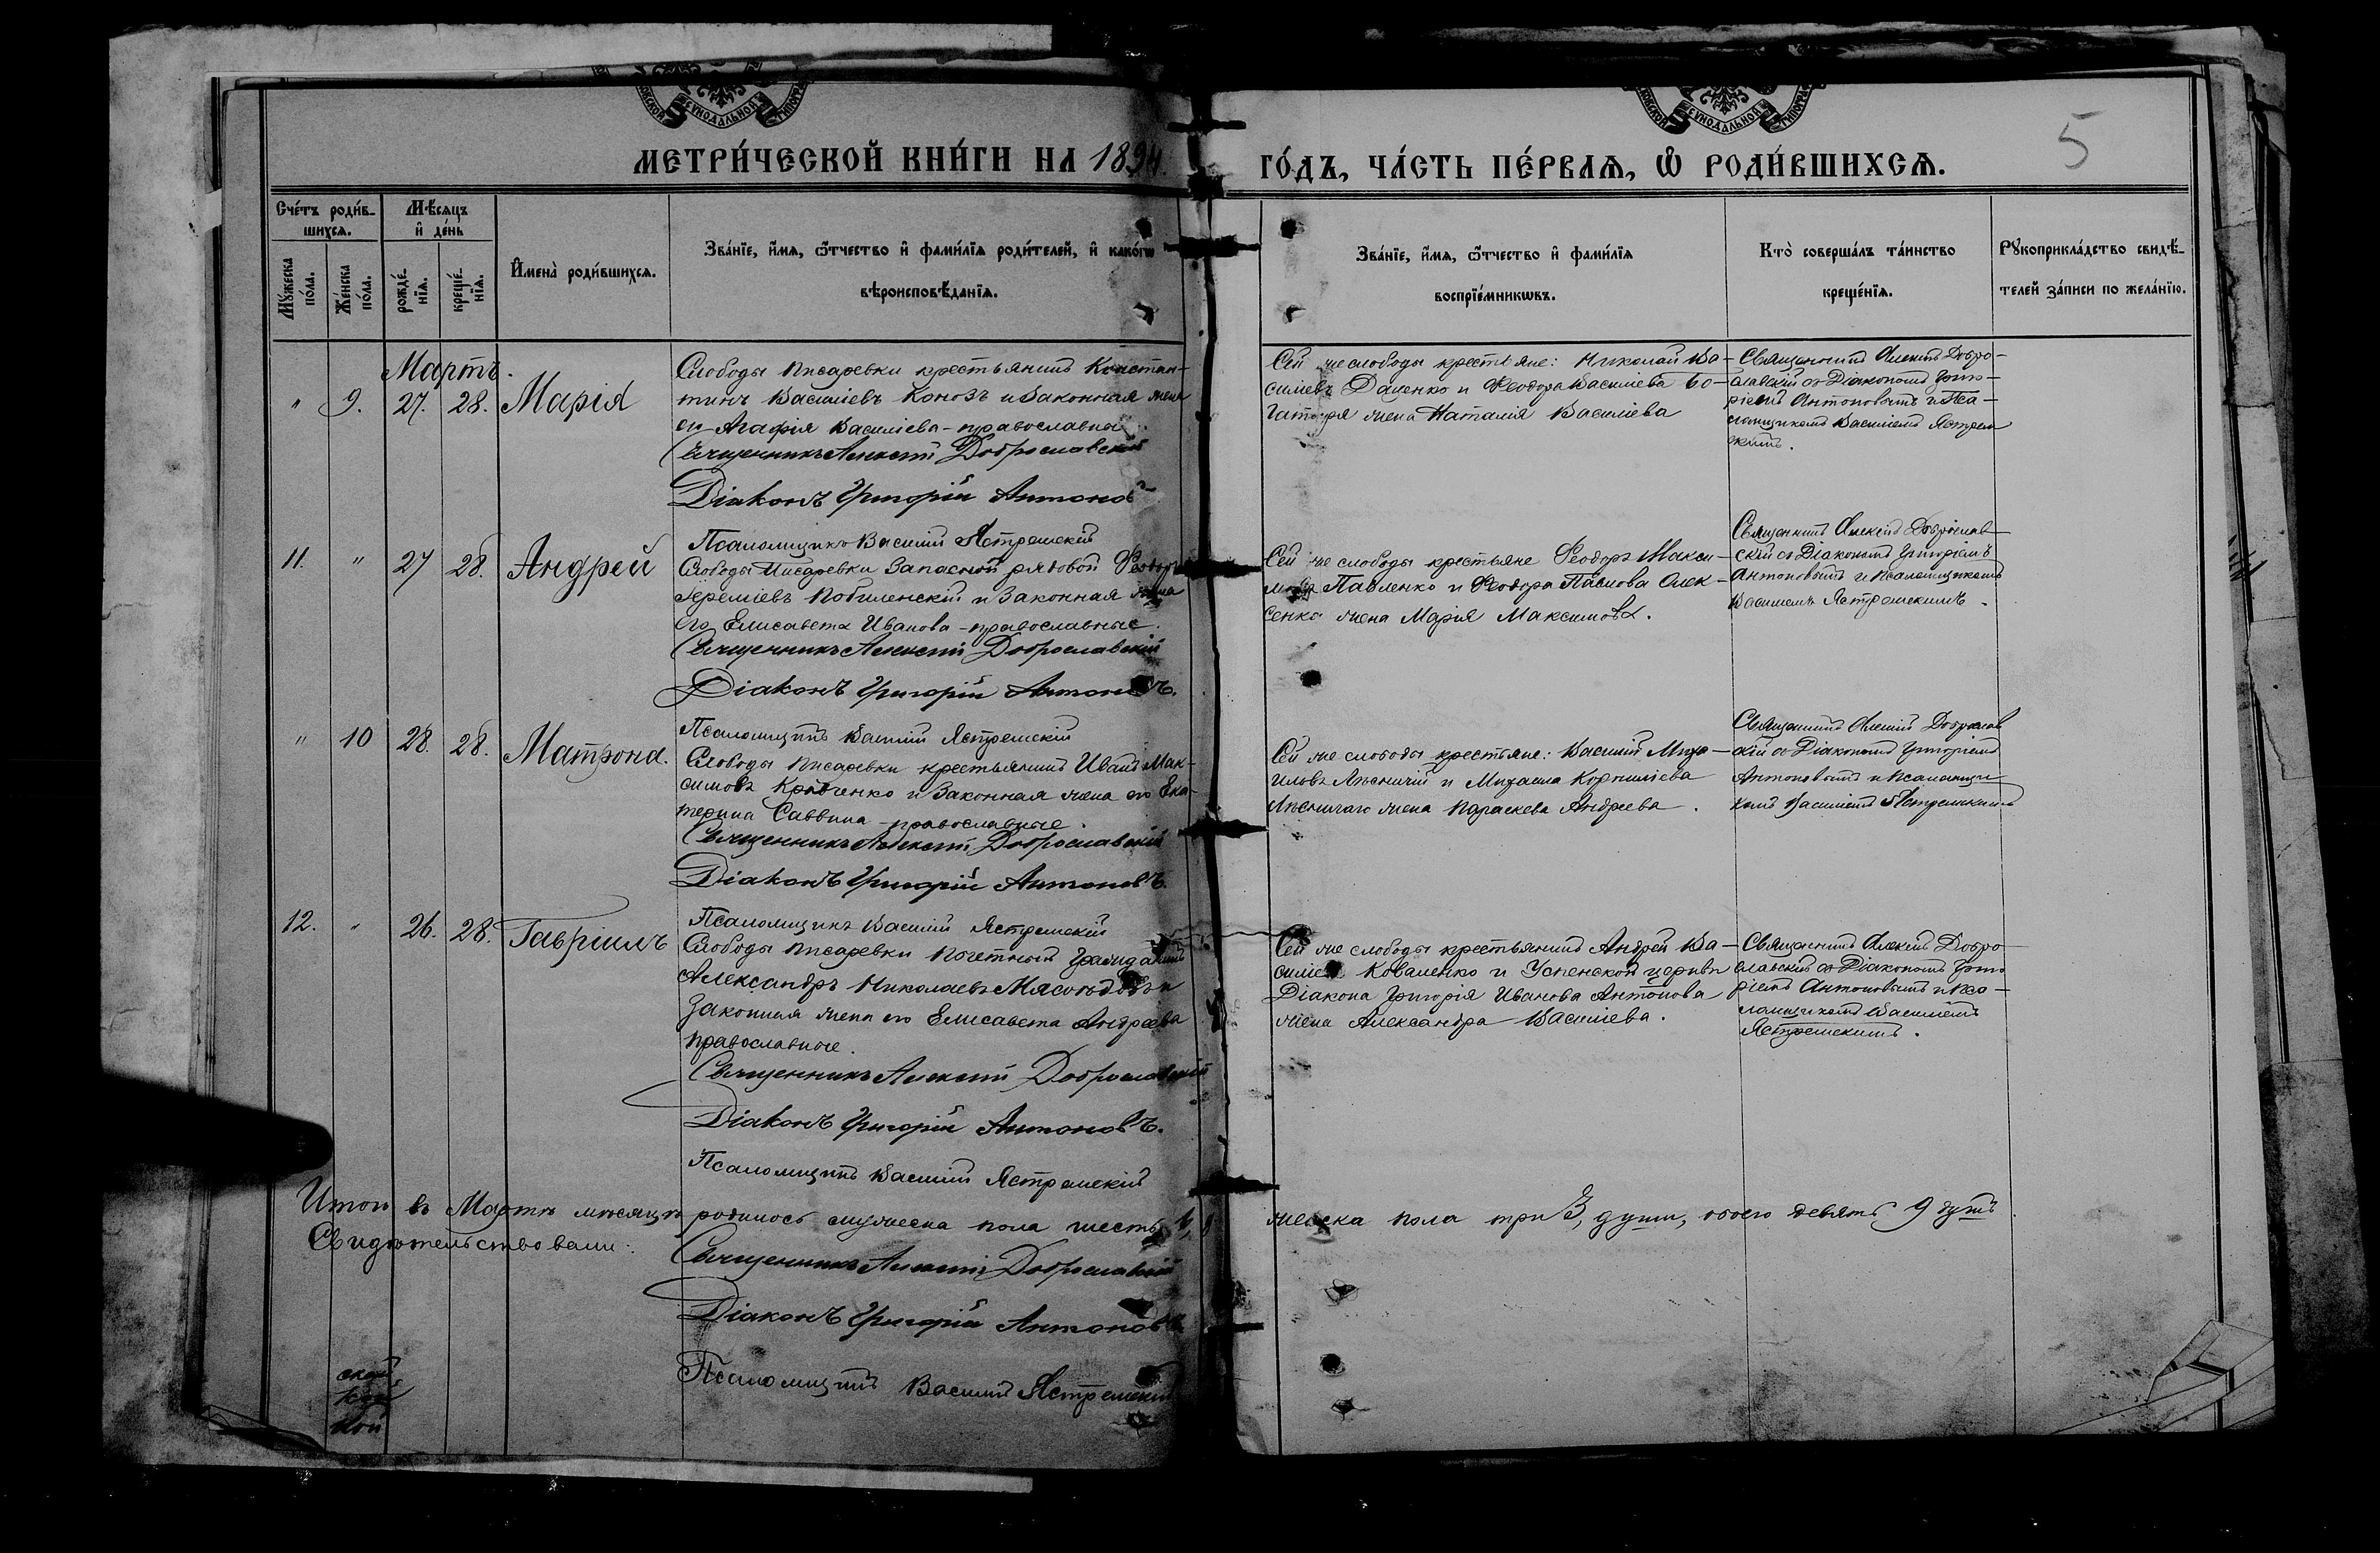 МЕТРИ́ЧЕСКОЙ КНИ́ГИ НА 1894.
ГО́ДЪ, ЧА́СТЬ ПЕ́РВАѦ, Ѡ РОДИ́ВШИХСѦ.
5
Сче́тъ роди́в-
шихсѧ.
Мѣ́сѧцъ
и҆ де́нь
Мꙋ́жеска
по́ла.
Же́нска
по́ла.
рожде́-
нїѧ.
креще́-
нїѧ.
И҆мена̀ роди́вшихсѧ.
Зва́нїе, и҆́мѧ, ѻ҆́тчество и҆ фами́лїѧ роди́телей, и҆ како́гѡ
вѣроисповѣ́данїѧ.
Зва́нїе, и҆́мѧ, ѻ҆́тчество и҆ фами́лїѧ
воспрїе́мникѡвъ.
Кто̀ соверша́лъ та́инство
креще́нїѧ.
Рꙋкоприкла́дство свидѣ́-
телей за́писи по жела́нїю.
Мартъ.
" 9. 27. 28. Марія
Слободы Писаревки крестьянинъ Констан-
тинъ Василіевъ Коновъ и законная жена
его Агафія Василіева - православные
Священникъ Алексій Доброславскій
Діаконъ Григорій Антоновъ
Псаломщикъ Василій Ястремскій
Сей же слободы крестьяне: Николай Ва-
силіевъ Даценко и Феодора Василіева Бо-
жена Наталія Василіева
Священникъ Алексій Добро-
славскій съ Діакономъ Григо-
ріемъ Антоновымъ и Пса-
ломщикомъ Василіемъ Ястрем
скимъ.
11. " 27 28. Андрей
Слободы Писаревки запасной рядовой Феодоръ
Іереміевъ Побиленскій и законная жена
его Елисавета Иванова - православные.
Священникъ Алексій Доброславскій
Діаконъ Григорій Антоновъ.
Псаломщикъ Василій Ястремскій
Сей же слободы крестьяне Феодоръ Макси-
мовъ Павленко и Феодора Павлова Олек-
сенко жена Марія Максимова.
Священникъ Алексій Доброслав-
скій съ Діакономъ Григоріемъ
Антоновымъ и Псаломщикомъ
Василіемъ Ястремскимъ.
" 10 28. 28. Матрона.
Слободы Писаревки крестьянинъ Иванъ Мак-
симовъ Кравченко и законная жена его Ека-
терина Саввина - православные.
Священникъ Алексій Доброславскій
Діаконъ Григорій Антоновъ.
Псаломщикъ Василій Ястремскій
Сей же слободы крестьяне: Василій Миха-
иловъ Лѣсничій и Михаила Корниліева
Лѣсничаго жена Параскева Андреева.
Священникъ Алексій Доброслав
скій съ Діакономъ Григоріемъ
Антоновымъ и Псаломщи-
комъ Василіемъ Ястремскимъ
12. " 26. 28. Гавріилъ
Слободы Писаревки Почетный Гражданинъ
Александръ Николаевъ Мясоѣдовъ и
законная жена его Елисавета Андреева
православные.
Священникъ Алексій Доброславскій
Діаконъ Григорій Антоновъ.
Псаломщикъ Василій Ястремскій
Сей же слободы крестьянинъ Андрей Ва-
силіевъ Коваленко и Успенской церкви
Діакона Григорія Иванова Антонова
жена Александра Василіева.
Священникъ Алексій Добро-
славскій съ Діакономъ Григо
ріемъ Антоновымъ и Пса-
ломщикомъ Василіемъ
Ястремскимъ.
Итого въ Мартѣ мѣсяцѣ родилось мужеска пола шесть 6, женска пола три 3, души, обоего девять 9 душъ
Свидѣтельствовали:
Священникъ Алексій Доброславскій
Діаконъ Григорій Антоновъ
Псаломщикъ Василій Ястремскій
ской
ной